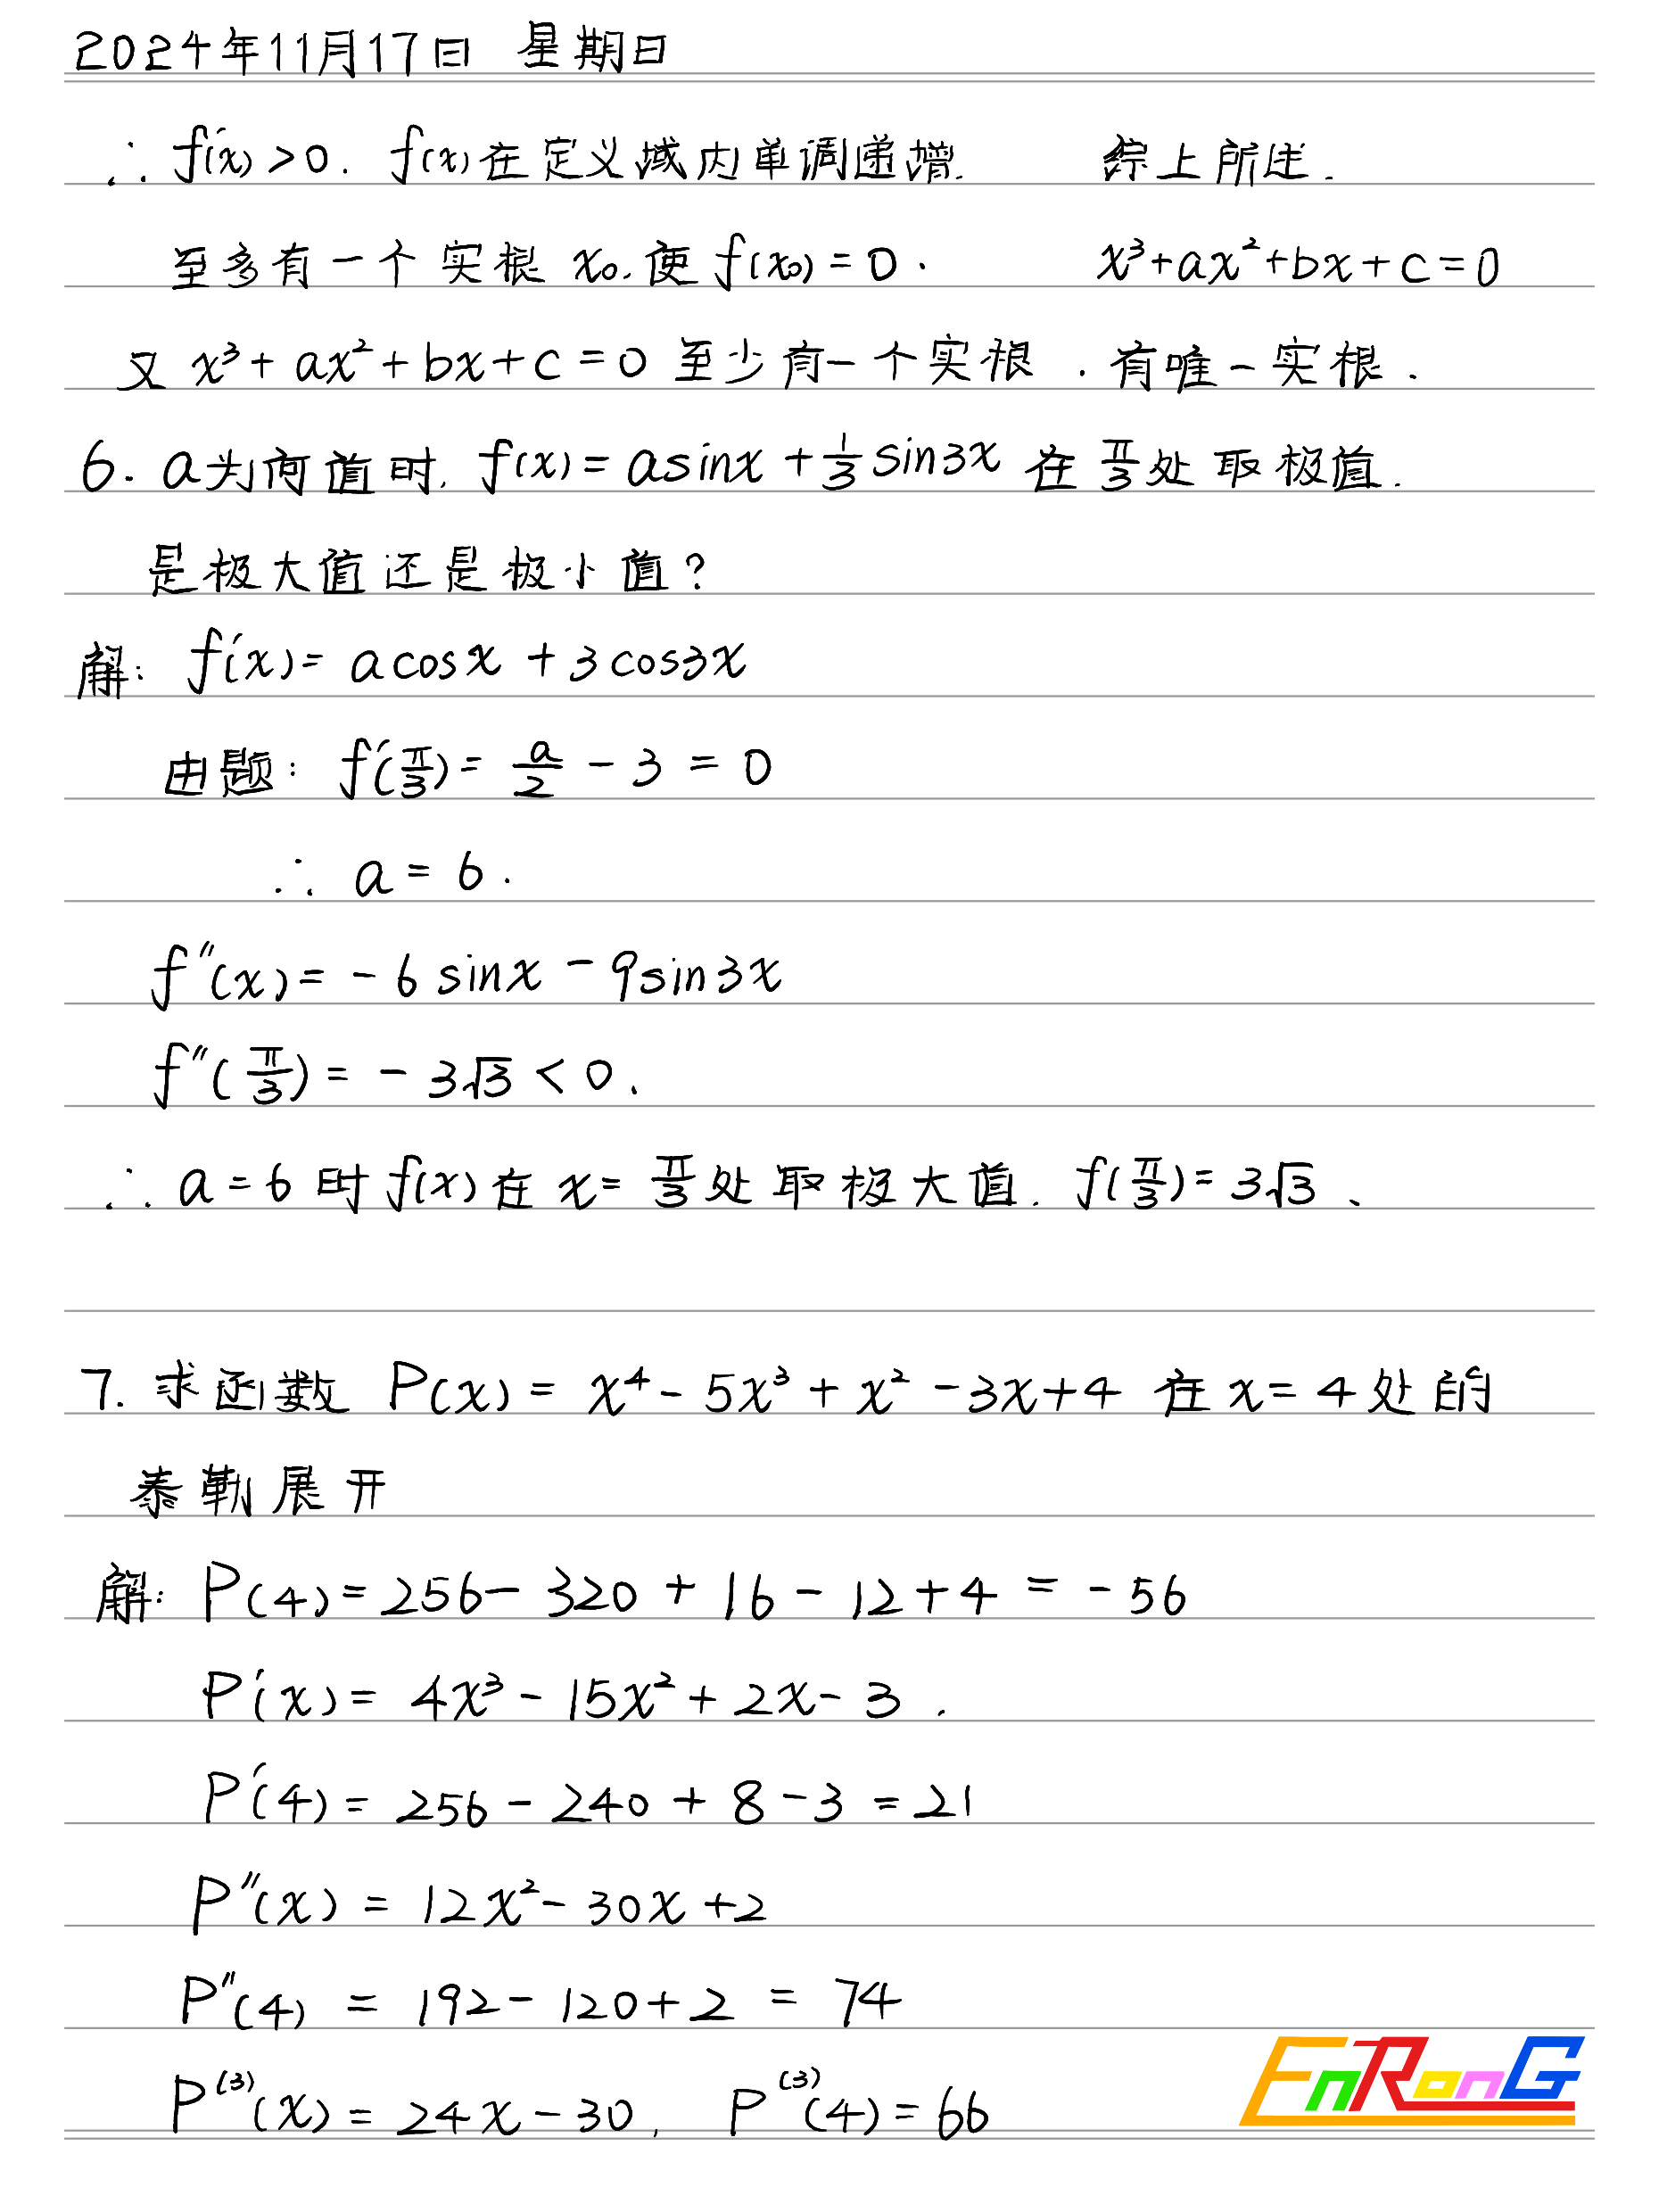 2024年11月17日 星期日
∴ f'(x)>0. f(x)在定义域内单调递增. 综上所述.
至多有一个实根 x₀. 使 f(x₀)=0. x³+ax²+bx+c=0
又 x³+ax²+bx+c=0 至少有一个实根. 有唯一实根.
6. a为何值时, f(x)=asinx+1/3 sin3x 在 π/3 处取极值.
是极大值还是极小值?
解: f'(x)=acosx+3cos3x
由题: f'(π/3)=a/2-3=0
∴ a=6.
f''(x)=-6sinx-9sin3x
f''(π/3)=-3√3<0.
∴ a=6时f(x)在x=π/3处取极大值. f(π/3)=3√3、
7. 求函数 P(x)=x⁴-5x³+x²-3x+4 在x=4处的
泰勒展开
解: P(4)=256-320+16-12+4=-56
P'(x)=4x³-15x²+2x-3.
P'(4)=256-240+8-3=21
P''(x)=12x²-30x+2
P''(4)=192-120+2=74
P⁽³⁾(x)=24x-30, P⁽³⁾(4)=66
EnRonG